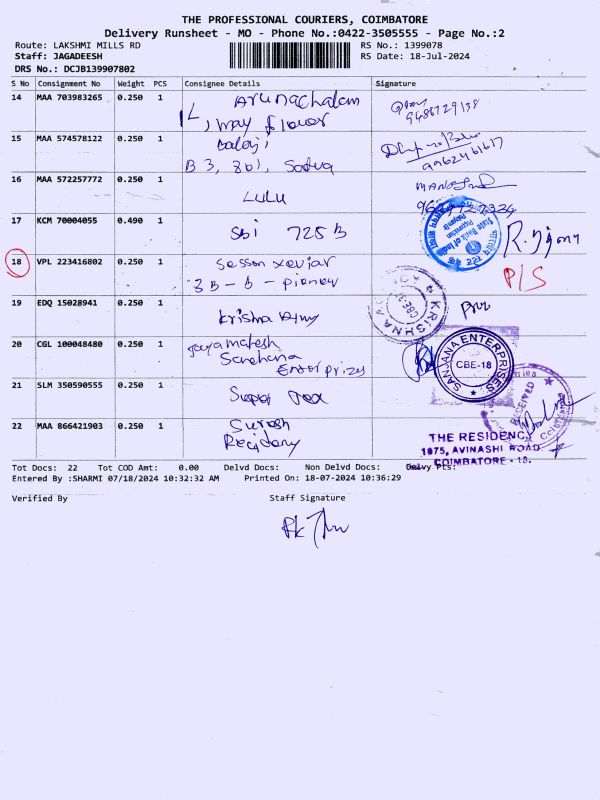 THE PROFESSIONAL COURIERS, COIMBATORE
Delivery Runsheet - MO - Phone No.:0422-3505555 - Page No.:2
Route: LAKSHMI MILLS RD
RS No.: 1399078
Staff: JAGADEESH
RS Date: 18-Jul-2024
DRS No.: DCJB139907802
S No Consignment No Weight PCS Consignee Details Signature
14 MAA 703983265 0.250 1 Arunachalam
may flower
15 MAA 574578122 0.250 1 balaji
B 3, 801,
16 MAA 572257772 0.250 1 LULU
17 KCM 70004055 0.490 1 Sbi 725 B
State Bank of India
R.
18 VPL 223416802 0.250 1 Sesson xavier
3 B - b - pioneer
P/S
19 EDQ 15028941 0.250 1 Krishna
KRISHNA
20 CGL 100048480 0.250 1
Enter prizes
SANJANA ENTERPRISES
CBE-18
21 SLM 350590555 0.250 1 Super
RECEIVED
22 MAA 866421903 0.250 1 Suresh
Recidany
THE RESIDENCY
1075, AVINASHI ROAD,
COIMBATORE - 18.
Tot Docs: 22 Tot COD Amt: 0.00 Delvd Docs: Non Delvd Docs: Delvy Pts:
Entered By :SHARMI 07/18/2024 10:32:32 AM Printed On: 18-07-2024 10:36:29
Verified By Staff Signature